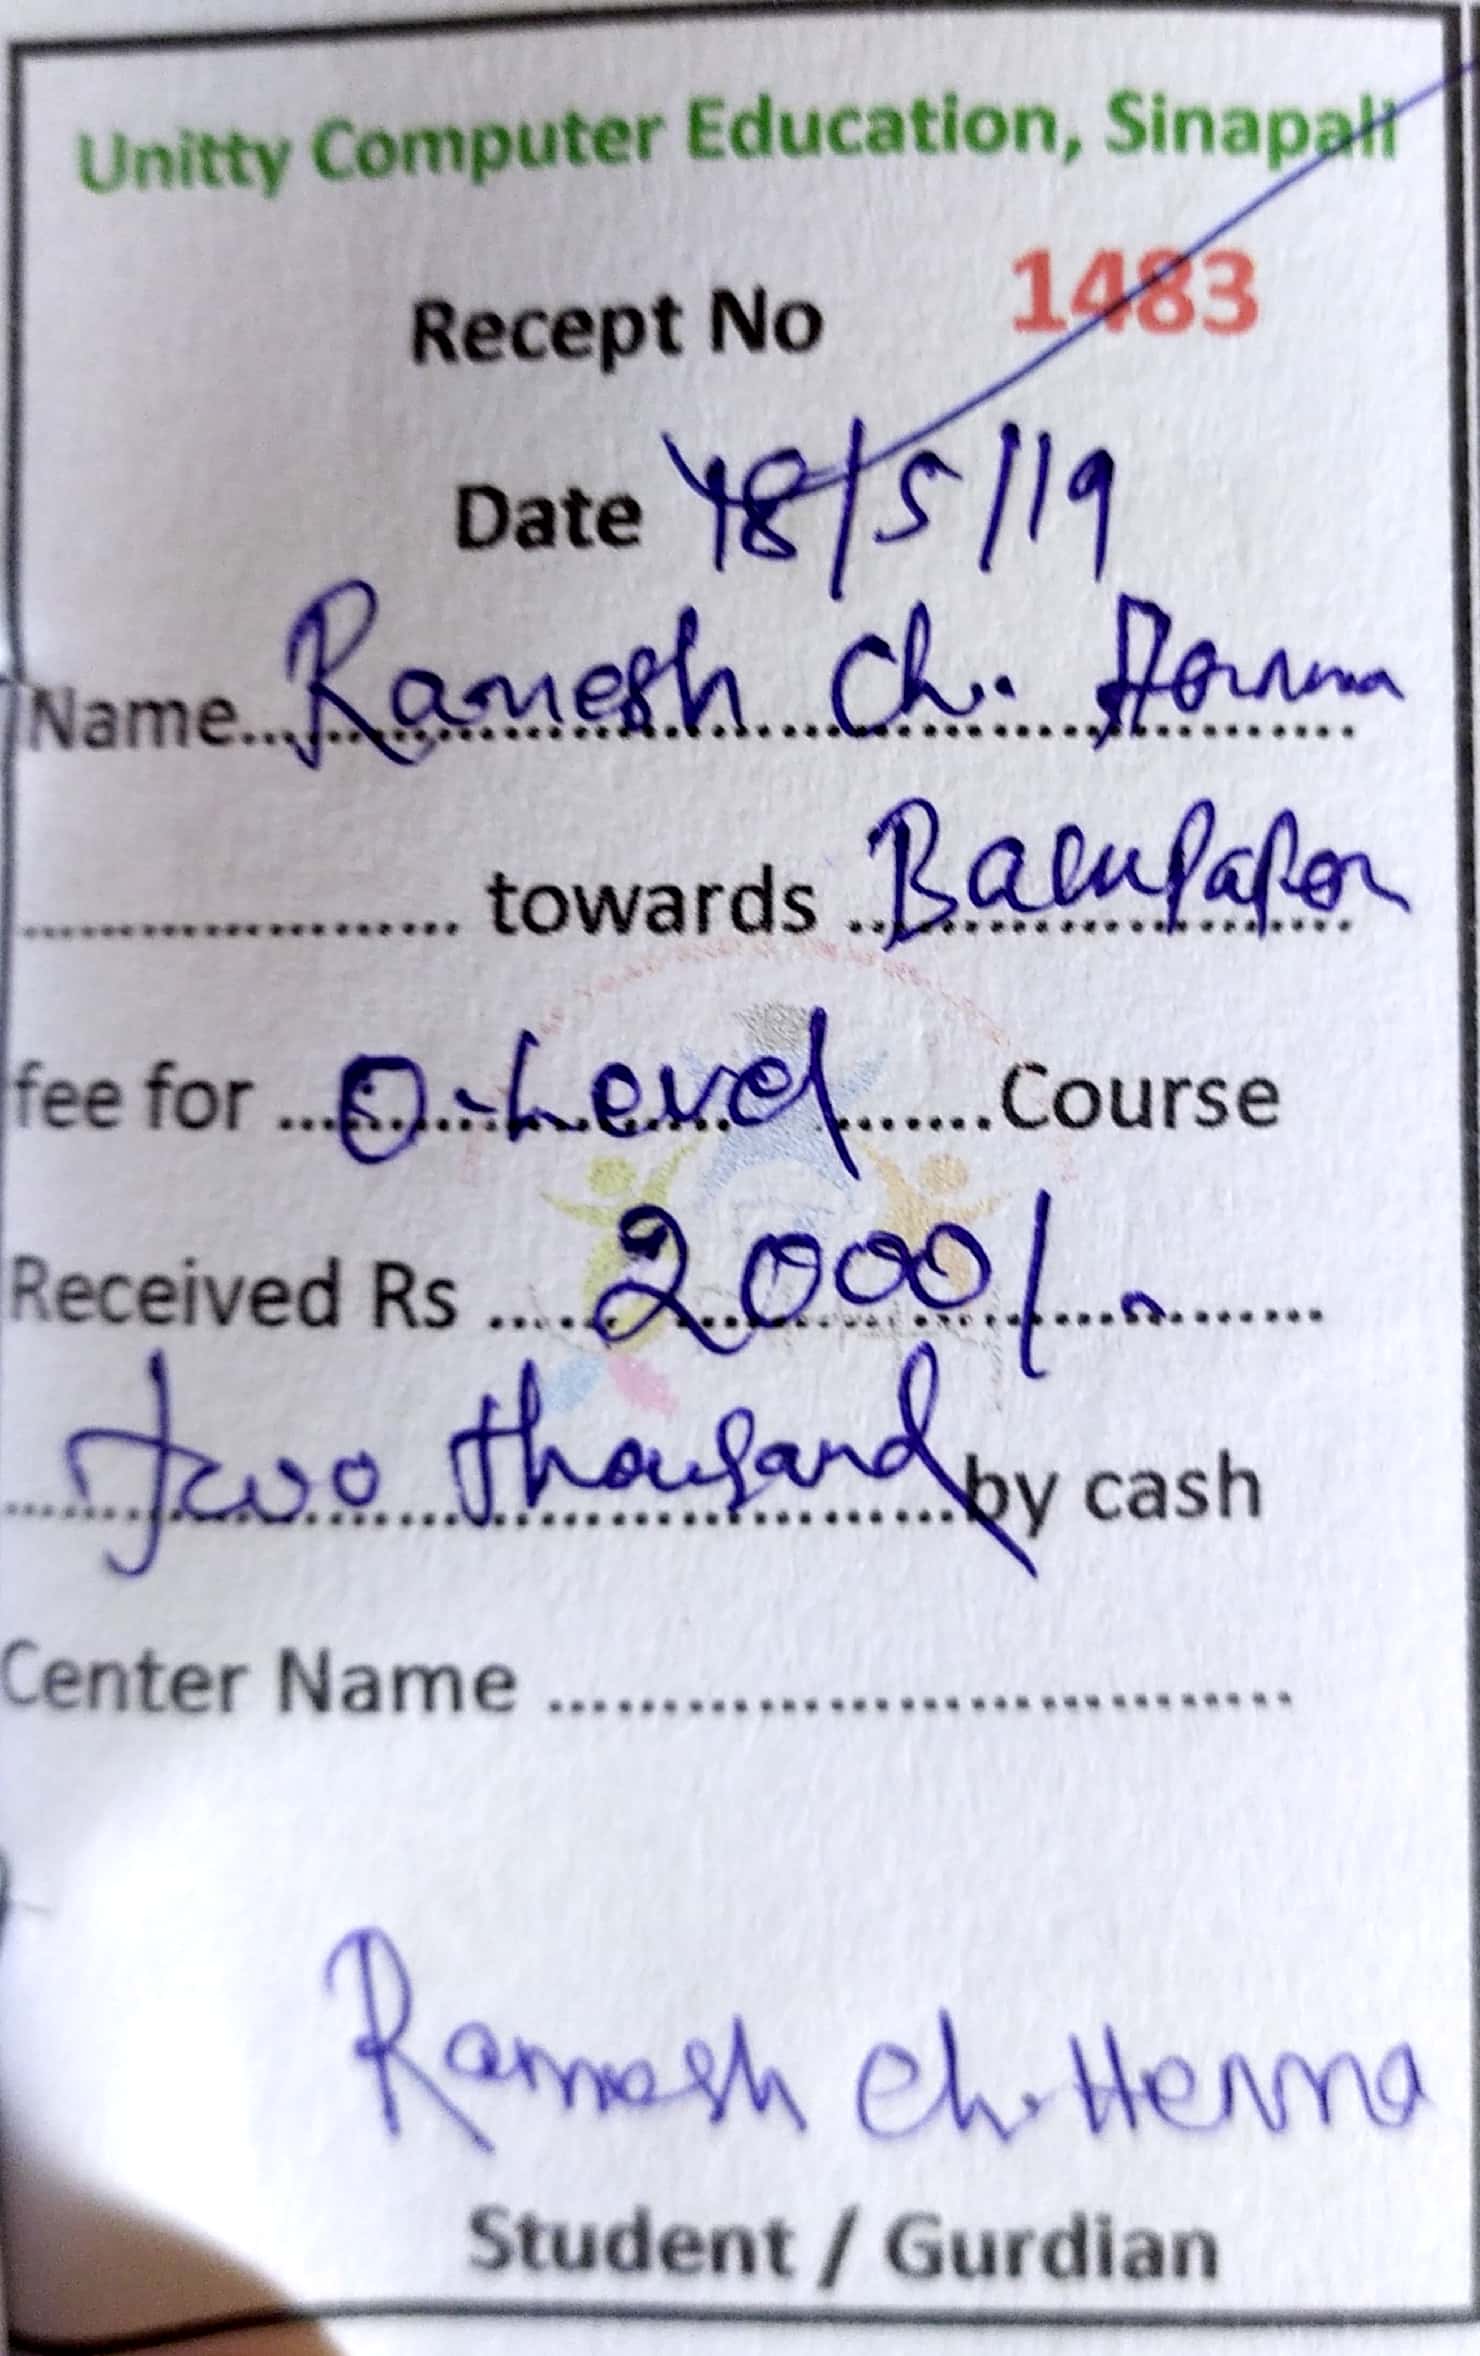 Unitty Computer Education, Sinapali
Recept No 1483
Date 18/5/19
Name...Ramesh Ch. Herma
.................... towards ..
fee for ...O-Level.......Course
Received Rs .....2000/-........
two thousand by cash
Center Name ................................
Ramesh Ch. Herma
Student / Gurdian